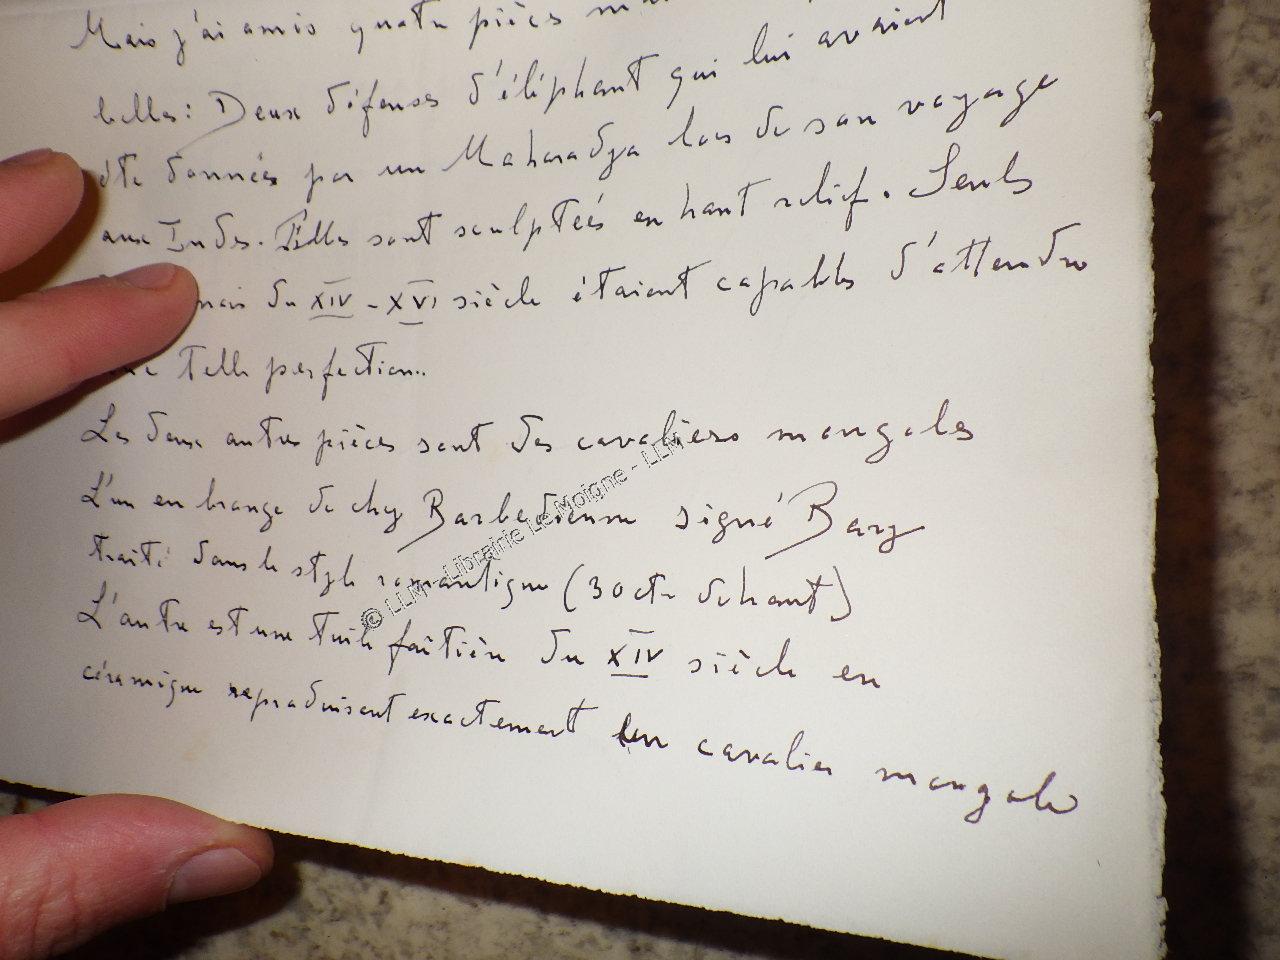 Mais j'ai amis quatre pièces
belles: Deux défenses d'éléphant qui lui avaient
été données par un Maharadja lors de son voyage
aux Indes. Elles sont sculptées en haut relief. Seuls
du XIV - XVI siècle étaient capables d'attendre
telle perfection..
Les deux autres pièces sont des cavaliers mongoles
L'un en bronze de chez Barbedienne signé Bary
traité dans le style romantique (30 ctm de haut)
L'autre est une tuile faîtière du XIV siècle en
céramique reproduisant exactement un cavalier mongole
© LLM - Librairie Le Moigne - LLM